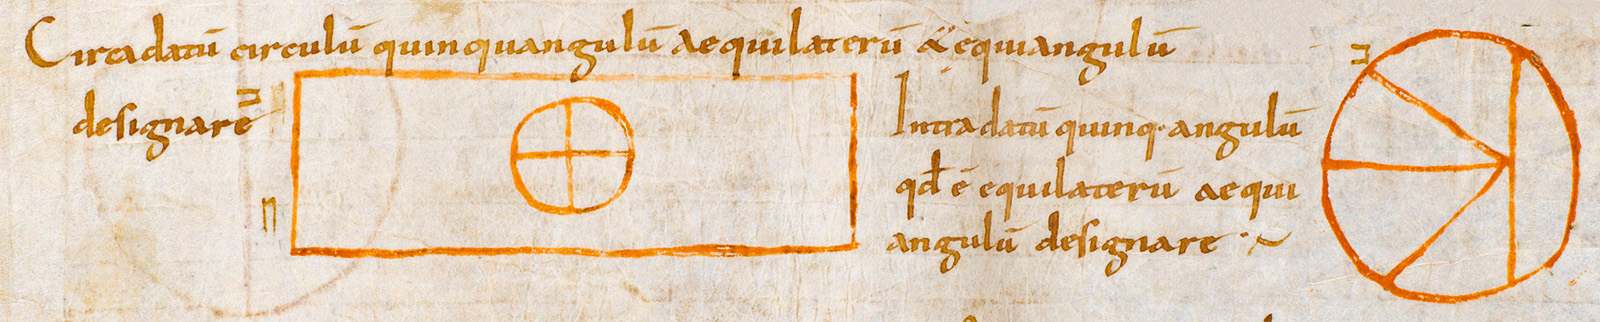 Circa datū circulū quinquangulū aequilaterū & equiangulū
designare
Intra datū quinq· angulū
qđ ē equilaterū aequi
angulū designare